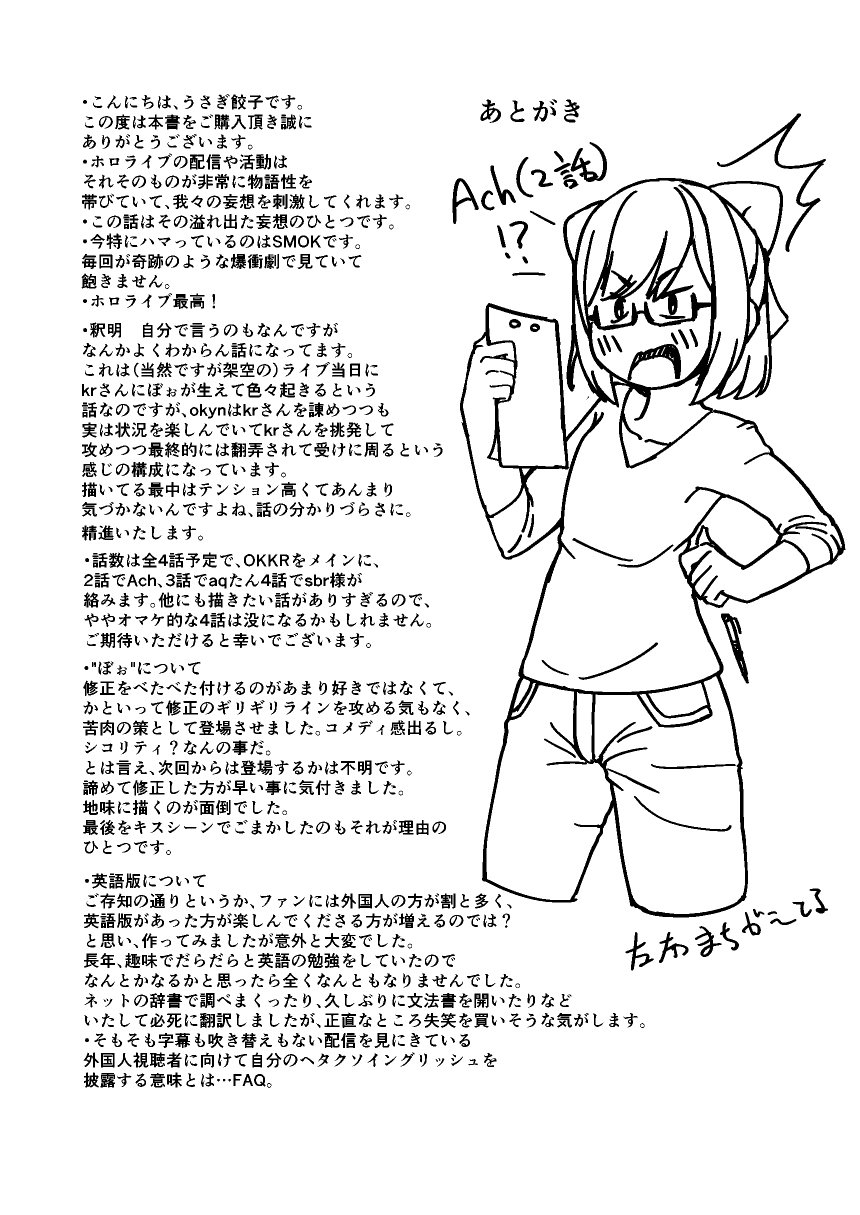 あとがき
・こんにちは、うさぎ餃子です。
この度は本書をご購入頂き誠に
ありがとうございます。
・ホロライブの配信や活動は
それそのものが非常に物語性を
帯びていて、我々の妄想を刺激してくれます。
・この話はその溢れ出た妄想のひとつです。
・今特にハマっているのはSMOKです。
毎回が奇跡のような爆衝劇で見ていて
飽きません。
・ホロライブ最高！
・釈明　自分で言うのもなんですが
なんかよくわからん話になってます。
これは（当然ですが架空の）ライブ当日に
krさんにぼぉが生えて色々起きるという
話なのですが、okynはkrさんを諌めつつも
実は状況を楽しんでいてkrさんを挑発して
攻めつつ最終的には翻弄されて受けに周るという
感じの構成になっています。
描いてる最中はテンション高くてあんまり
気づかないんですよね、話の分かりづらさに。
精進いたします。
・話数は全4話予定で、OKKRをメインに、
2話でAch、3話でaqたん4話でsbr様が
絡みます。他にも描きたい話がありすぎるので、
ややオマケ的な4話は没になるかもしれません。
ご期待いただけると幸いでございます。
・"ぼぉ"について
修正をべたべた付けるのがあまり好きではなくて、
かといって修正のギリギリラインを攻める気もなく、
苦肉の策として登場させました。コメディ感出るし。
シコリティ？なんの事だ。
とは言え、次回からは登場するかは不明です。
諦めて修正した方が早い事に気付きました。
地味に描くのが面倒でした。
最後をキスシーンでごまかしたのもそれが理由の
ひとつです。
・英語版について
ご存知の通りというか、ファンには外国人の方が割と多く、
英語版があった方が楽しんでくださる方が増えるのでは？
と思い、作ってみましたが意外と大変でした。
長年、趣味でだらだらと英語の勉強をしていたので
なんとかなるかと思ったら全くなんともなりませんでした。
ネットの辞書で調べまくったり、久しぶりに文法書を開いたりなど
いたして必死に翻訳しましたが、正直なところ失笑を買いそうな気がします。
・そもそも字幕も吹き替えもない配信を見にきている
外国人視聴者に向けて自分のヘタクソイングリッシュを
披露する意味とは…FAQ。
Ach(2話)
!?
左右まちがえてる